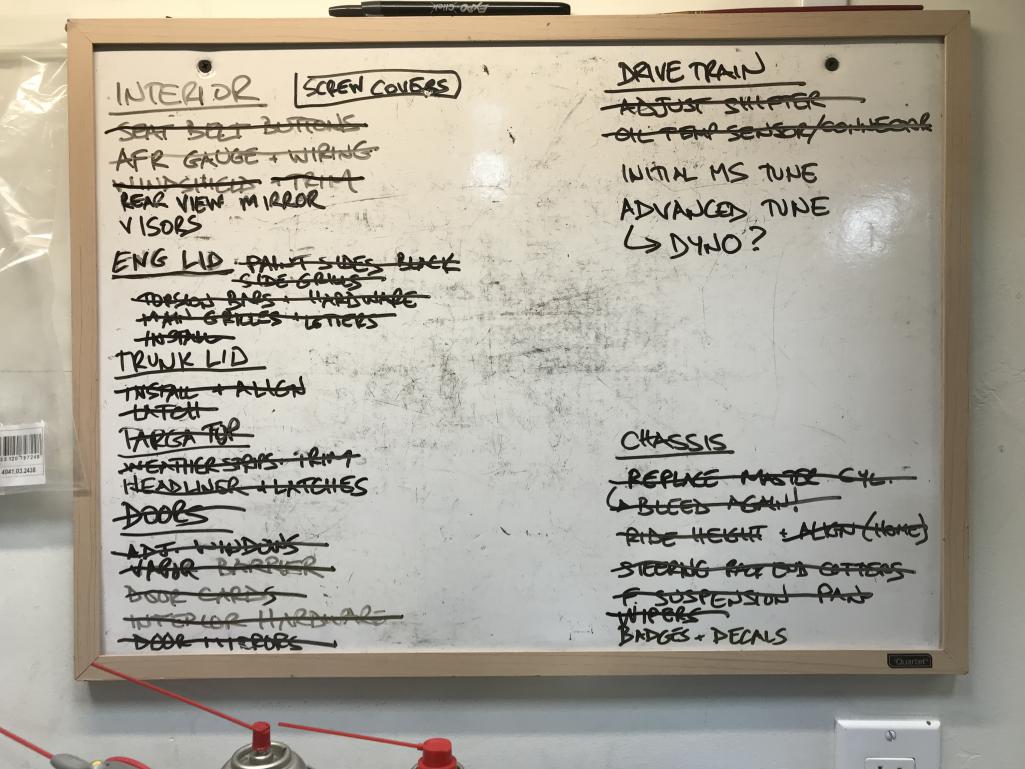 EXPO click
INTERIOR
SCREW COVERS
SEAT BELT BUTTONS
AFR GAUGE + WIRING
WINDSHIELD + TRIM
REAR VIEW MIRROR
VISORS
ENG LID PAINT SIDES BLACK
SIDE GRILLS
TORSION BARS + HARDWARE
MAIN GRILLES + LETTERS
INSTALL
TRUNK LID
INSTALL + ALIGN
LATCH
TARGA TOP
WEATHER STRIPS + TRIM
HEADLINER + LATCHES
DOORS
ADJ. WINDOWS
VAPOR BARRIER
DOOR CARDS
INTERIOR HARDWARE
DOOR MIRRORS
DRIVE TRAIN
ADJUST SHIFTER
OIL TEMP SENSOR/CONNECTOR
INITIAL MS TUNE
ADVANCED TUNE
↳ DYNO?
CHASSIS
REPLACE MASTER CYL.
↳ BLEED AGAIN!
RIDE HEIGHT + ALIGN (HOME)
STEERING END COTTERS
F SUSPENSION PAN
WIPERS
BADGES + DECALS
Quartet
4041.03.2438